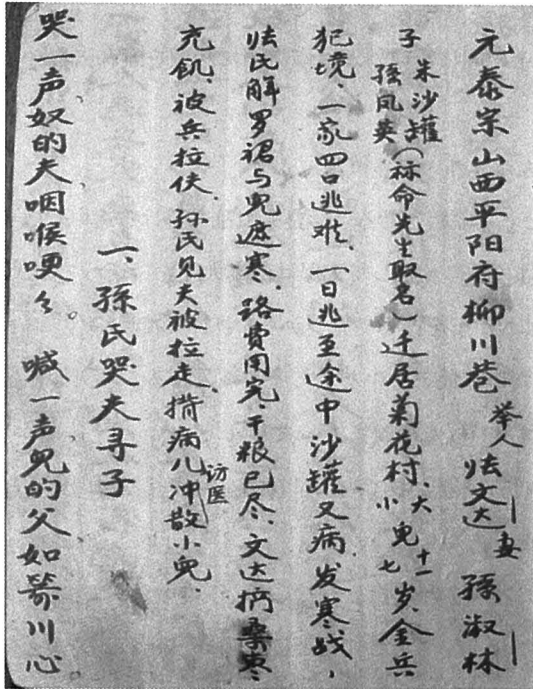 元泰宗山西平阳府柳川巷举人法文达妻孫淑林
子朱沙罐孫凤英(称命先生取名)迁居菊花村、大小児十一七岁、金兵
犯境、一家四口逃难、一日逃至途中沙罐又病、发寒战,
法氏解罗裙与児遮寒、路費用完、干粮已尽、文达摘桑枣
充飢、被兵拉伕、孙氏见夫被拉走、揹病儿訪医冲散小児、
一、孫氏哭夫寻子
哭一声奴的夫咽喉哽々。喊一声児的父如箭川心。